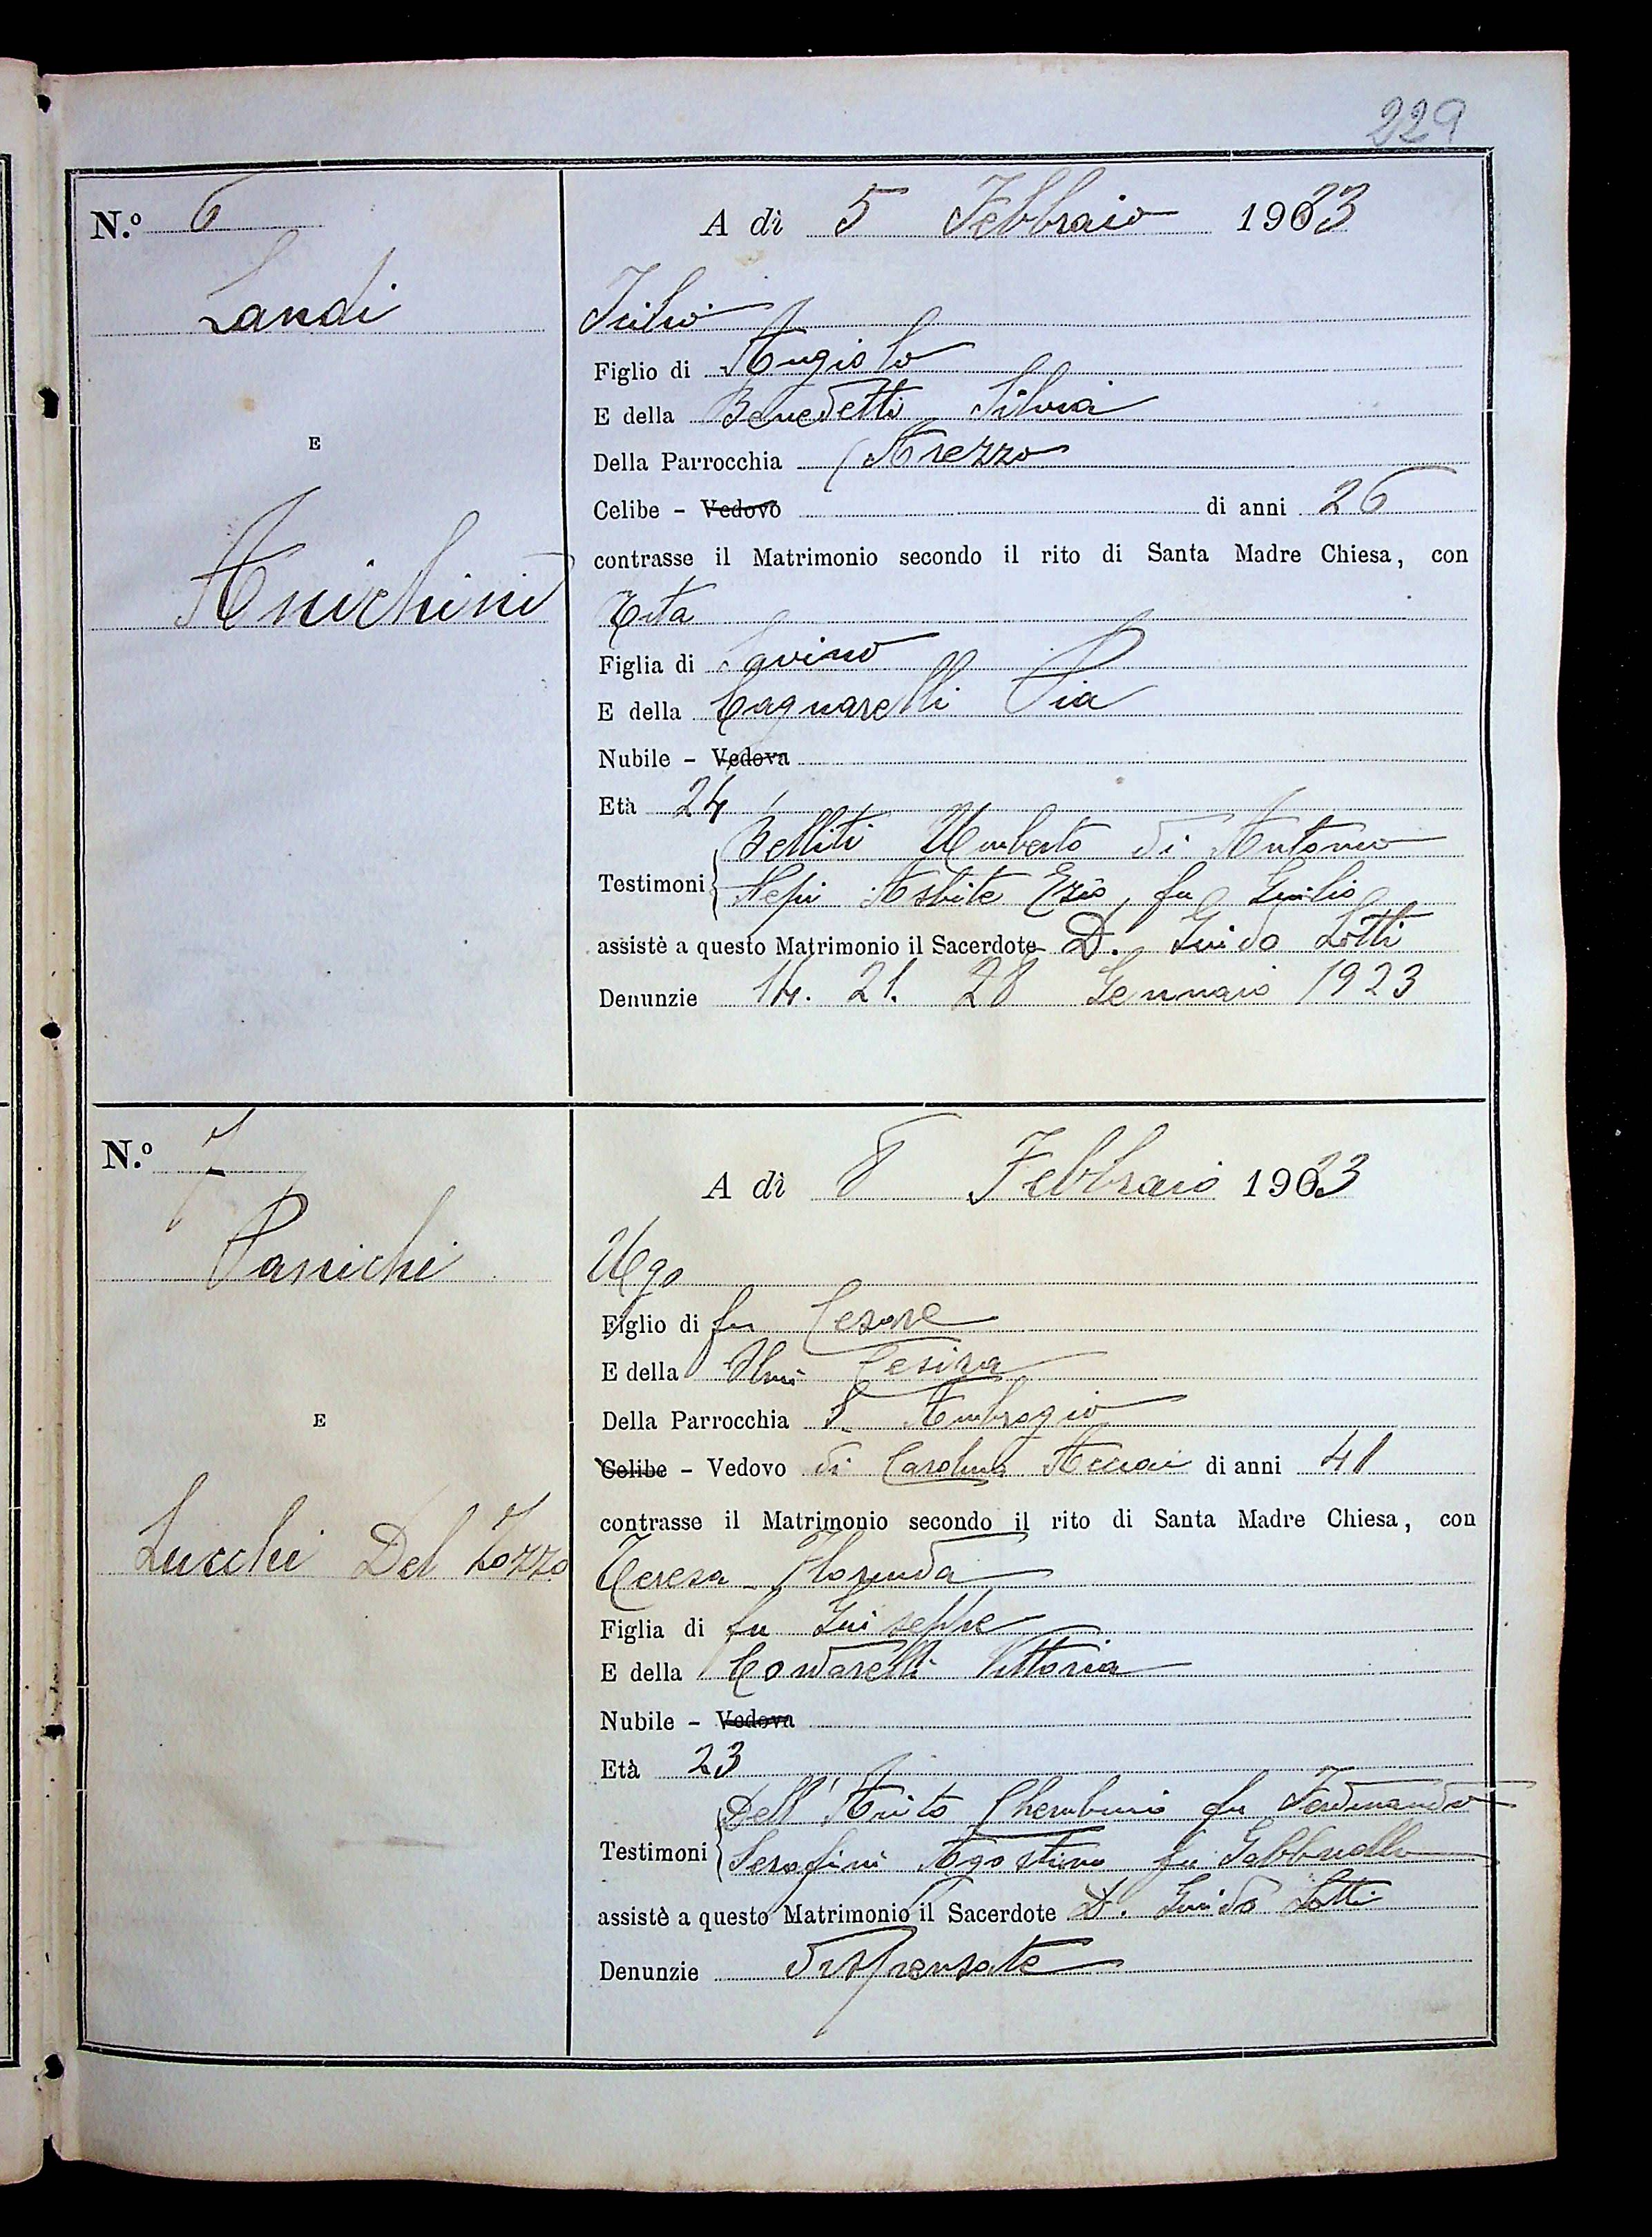 229
N.º 6
A dì 5 Febbraio 1923
Landi
E
Anichini
Icilio
Figlio di Angiolo
E della Benedetti Silvia
Della Parrocchia Arezzo
Celibe - Vedovo di anni 26
contrasse il Matrimonio secondo il rito di Santa Madre Chiesa, con
Rita
Figlia di Savino
E della Cagnarelli Pia
Nubile - Vedova
Età 24
Testimoni Belliti Umberto di Antonio
Nepi Ezio fu Giulio
assistè a questo Matrimonio il Sacerdote D. Guido Lotti
Denunzie 14. 21. 28 Gennaio 1923
N.º 7
A dì 8 Febbraio 1923
Panichi
E
Lucchi Del Zozzo
Ugo
Figlio di fu Cesare
E della Ulmi Cesira
Della Parrocchia S. Ambrogio
Celibe - Vedovo di Carolina di anni 41
contrasse il Matrimonio secondo il rito di Santa Madre Chiesa, con
Teresa Florinda
Figlia di fu Giuseppe
E della Contarelli Vittoria
Nubile - Vedova
Età 23
Testimoni Dell' Cherubino fu Ferdinando
Serafini Agostino fu Gabbriello
assistè a questo Matrimonio il Sacerdote D. Guido Lotti
Denunzie dispensate